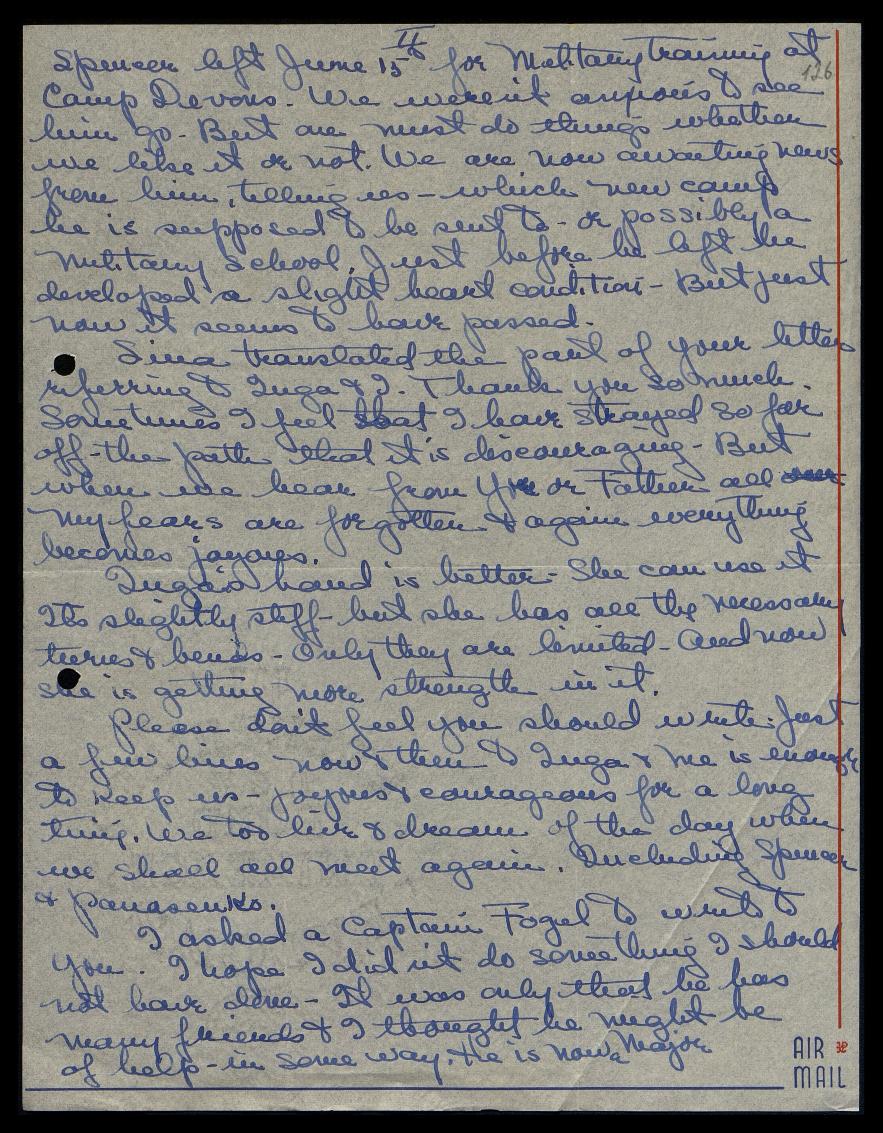 II
Spencer left June 15th for Military Training at
126
Camp Devons. We weren't anxious to see
him go. But one must do things whether
we like it or not. We are now awaiting news
from him, telling us - which new camp
he is supposed to be sent to - or possibly a
Military School. Just before he left he
developed a slight heart condition - But just
now it seems to have passed.
Sina translated the part of your letter
referring to Inga & I. Thank you so much.
Sometimes I feel that I have strayed so far
off-the path that it is discouraging - But
when we hear from You or Father all
my fears are forgotten & again everything
becomes joyous.
Inga's hand is better - She can use it
Its slightly stiff - but she has all the necessary
turns & bends - Only they are limited - And now
she is getting more strength in it.
Please don't feel you should write. Just
a few lines now & then to Inga & me is enough
to keep us - joyous & courageous for a long
time. We too live & dream of the day when
we shall all meet again. Including Spencer
& Panasenko.
I asked a Captain Fogel to write to
You. I hope I did n't do something I should
not have done - It was only that he has
many friends & I thought he might be
of help - in some way. He is now a Major
AIR
MAIL